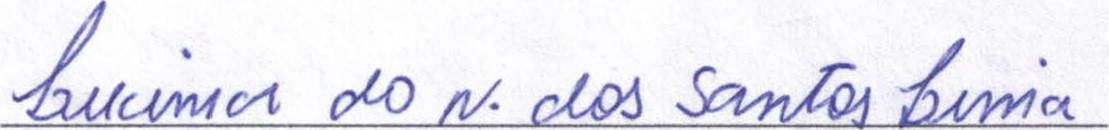 Lucimar do N. dos Santos Lima